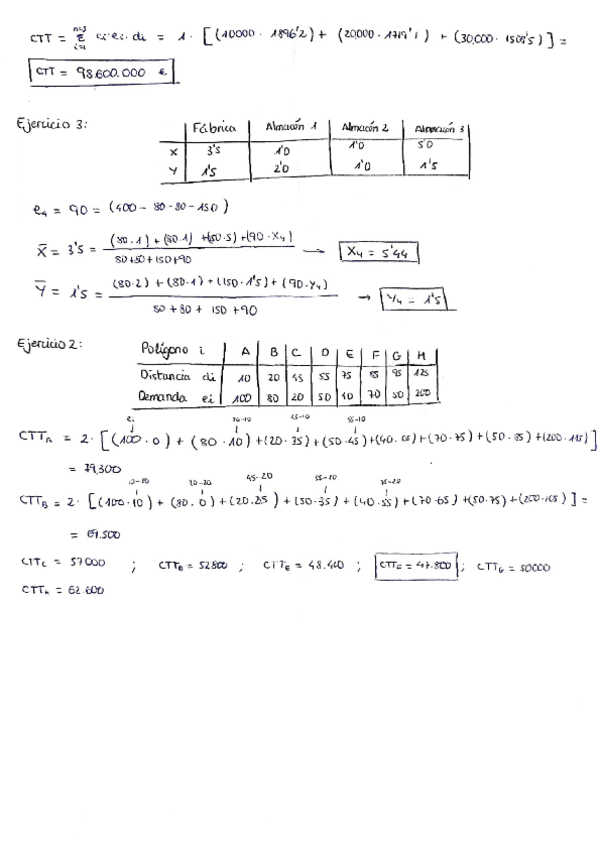 CTT = Σ ci·ei·di = 1 · [(10000 · 1896'2) + (20,000 · 1719'1) + (30,000 · 1505'5)] =
CTT = 98.600.000 €
Ejercicio 3:
Fábrica Almacén 1 Almacén 2 Almacén 3
X 3's 1'0 1'0 5'0
Y 1's 2'0 1'0 1's
e4 = 90 = (400 - 80 - 80 - 150)
X̄ = 3's = (80·1) + (80·1) + (150·5) + (90·X4) / 80+80+150+90 → X4 = 5'44
Ȳ = 1's = (80·2) + (80·1) + (150·1's) + (90·Y4) / 80+80+150+90 → Y4 = 1's
Ejercicio 2:
Polígono i A B C D E F G H
Distancia di 10 20 45 55 75 85 95 125
Demanda ei 100 80 20 50 40 70 50 200
ei 20-10 45-10 55-10
CTTA = 2· [(100·0) + (80·10) + (20·35) + (50·45) + (40·65) + (70·75) + (50·85) + (200·115)]
= 79,300
20-10 20-20 45-20 55-20 75-20
CTTB = 2· [(100·10) + (80·0) + (20·25) + (50·35) + (40·55) + (70·65) + (50·75) + (200·105)] =
= 69.500
CTTC = 57000 ; CTTD = 52800 ; CTTE = 48.400 ; = 47.800 ; CTTG = 50000
CTTH = 62.600